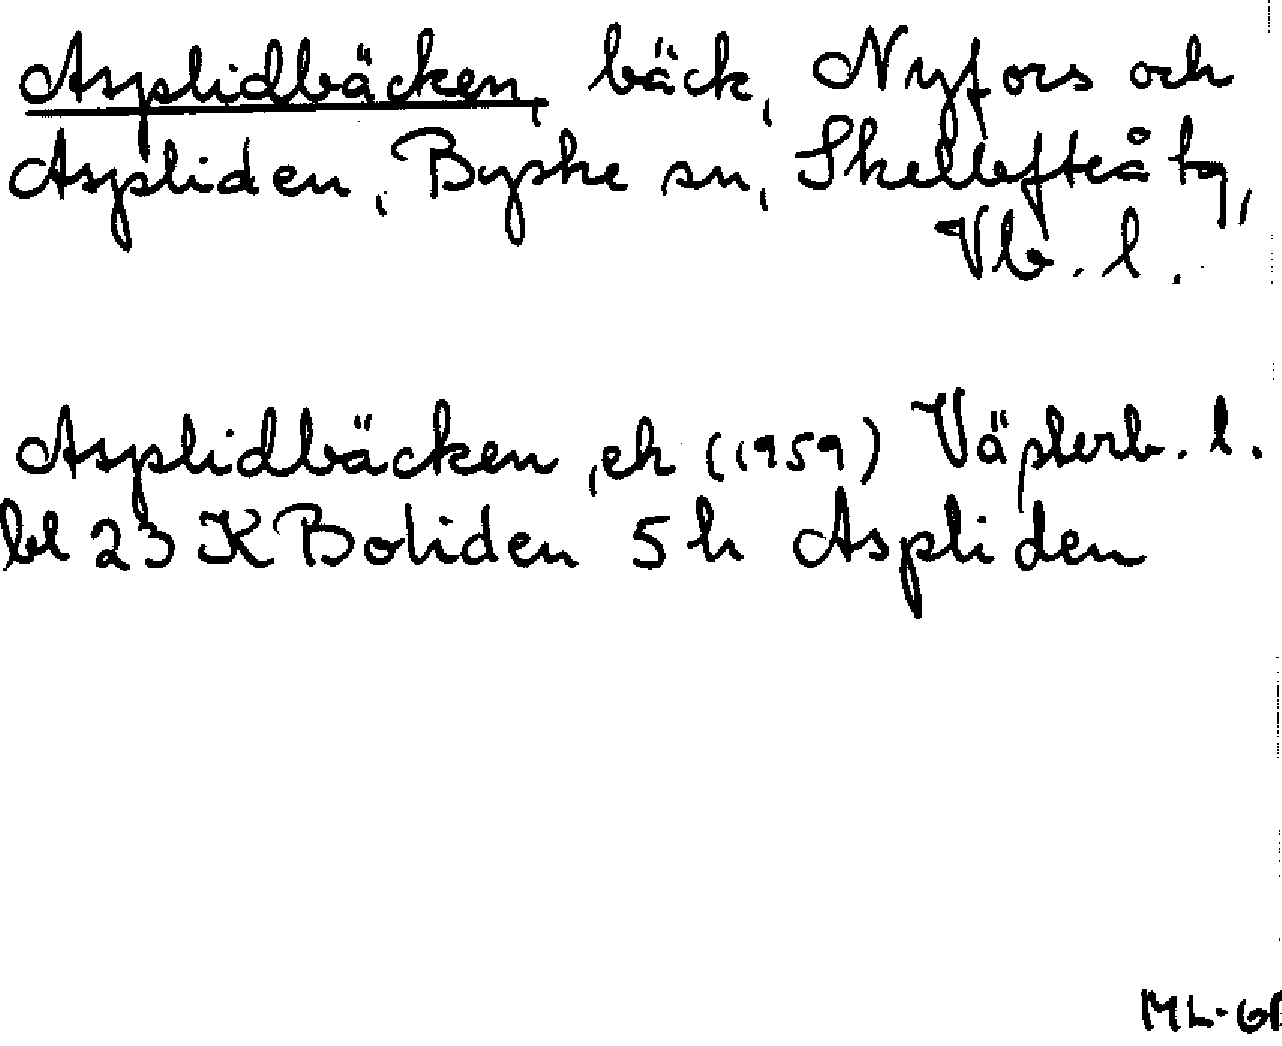 Asplidbäcken, bäck, Nyfors och
Aspliden, Byske sn, Skellefteå tg,
Vb. l.
Asplidbäcken, ek (1959) Västerb. l.
bl 23 K Boliden 5 h Aspliden